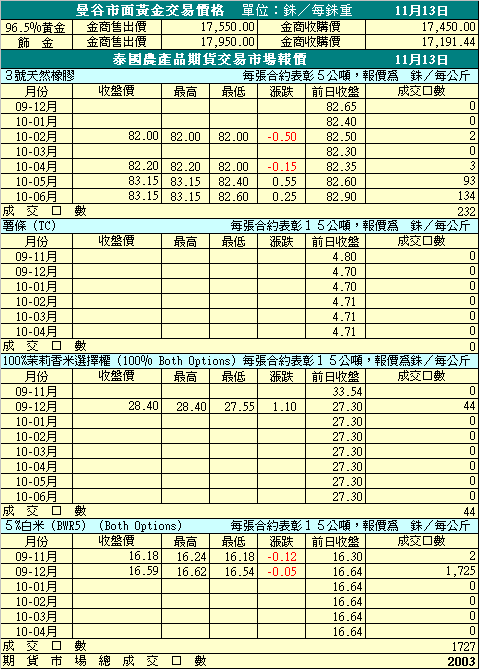 曼谷市面黃金交易價格 單位：銖／每銖重 11月13日
96.5%黃金 金商售出價 17,550.00 金商收購價 17,450.00
飾 金 金商售出價 17,950.00 金商收購價 17,191.44
泰國農產品期貨交易市場報價 11月13日
３號天然橡膠 每張合約表彰５公噸，報價爲 銖／每公斤
月份 收盤價 最高 最低 漲跌 前日收盤 成交口數
09-12月 82.65 0
10-01月 82.40 0
10-02月 82.00 82.00 82.00 -0.50 82.50 2
10-03月 82.30 0
10-04月 82.20 82.20 82.00 -0.15 82.35 3
10-05月 83.15 83.15 82.40 0.55 82.60 93
10-06月 83.15 83.15 82.60 0.25 82.90 134
成 交 口 數 232
薯條 (TC) 每張合約表彰１５公噸，報價爲 銖／每公斤
月份 收盤價 最高 最低 漲跌 前日收盤 成交口數
09-11月 4.80 0
09-12月 4.70 0
10-01月 4.70 0
10-02月 4.71 0
10-03月 4.71 0
10-04月 4.71 0
成 交 口 數 0
100%茉莉香米選擇權 (100% Both Options) 每張合約表彰１５公噸，報價爲銖／每公斤
月份 收盤價 最高 最低 漲跌 前日收盤 成交口數
09-11月 33.54 0
09-12月 28.40 28.40 27.55 1.10 27.30 44
10-01月 27.30 0
10-02月 27.30 0
10-03月 27.30 0
10-04月 27.30 0
10-05月 27.30 0
10-06月 27.30 0
成 交 口 數 44
５%白米 (BWR5) (Both Options) 每張合約表彰１５公噸，報價爲 銖／每公斤
月份 收盤價 最高 最低 漲跌 前日收盤 成交口數
09-11月 16.18 16.24 16.18 -0.12 16.30 2
09-12月 16.59 16.62 16.54 -0.05 16.64 1,725
10-01月 16.64 0
10-02月 16.64 0
10-03月 16.64 0
10-04月 16.64 0
成 交 口 數 1727
期 貨 市 場 總 成 交 口 數 2003